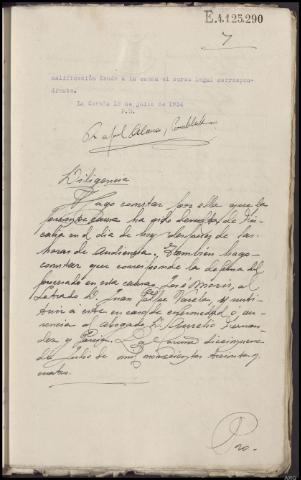 E.4.125.290
7
calificación dando a la causa el curso legal correspon-
diente.
La Coruña 18 de julio de 1934
P.D.
Diligencia
Hago constar por ella que la
presente causa ha sido devuelta de Fis-
calía en el día de hoy después de las
horas de audiencia, también hago
constar que corresponde la defensa del
procesado en esta causa José Mouris, al
Letrado D. Juan Felipe Varela, y susti-
tuir a este en caso de enfermedad o au-
sencia al abogado D. Aurelio Fernan-
dez y La Coruña diecinueve
de Julio de mil novecientos treinta y
cuatro.
Pro.